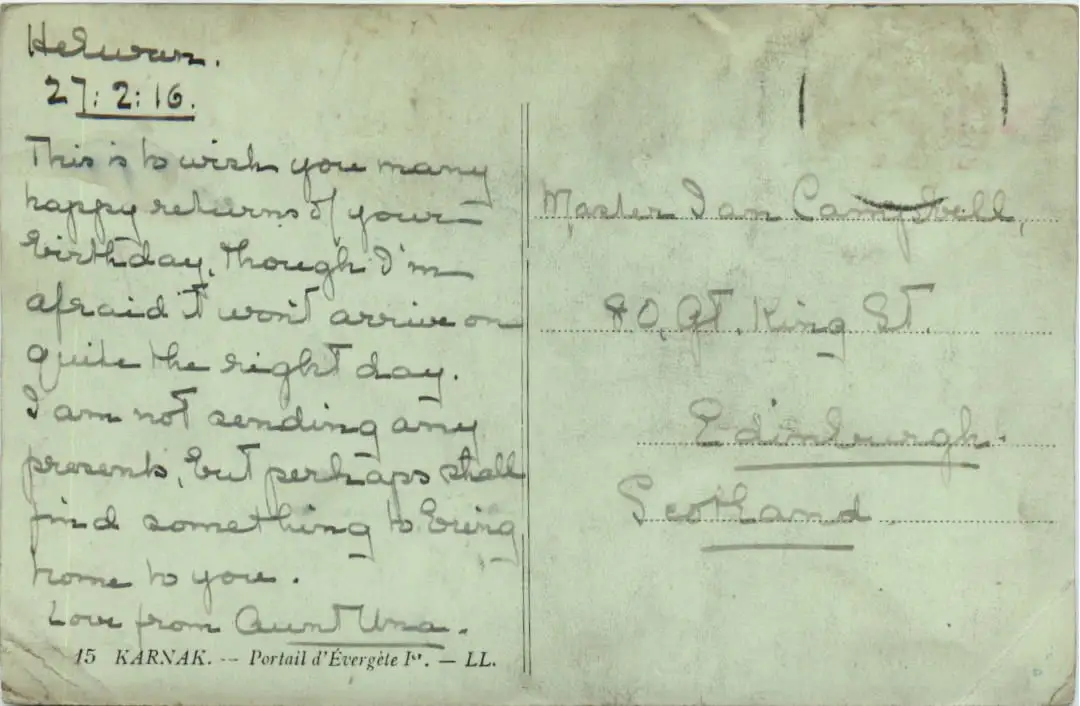 Heluran.
27:2:16.
This is to wish you many
happy returns of your
birthday, though I'm
afraid it won't arrive on
quite the right day.
I am not sending any
presents, but perhaps shall
find something to bring
home to you.
Love from Aunt Una.
15 KARNAK. -- Portail d'Évergète Iᵉʳ. — LL.
Master Ian Campbell,
80, Gt. King St.
Edinburgh.
Scotland